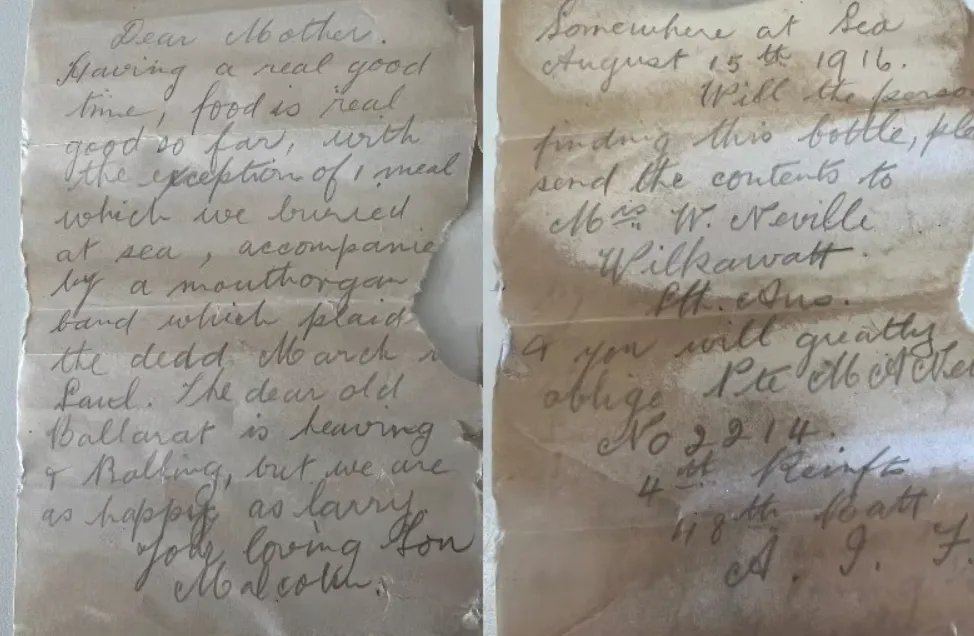 Dear Mother.
Having a real good
time, food is real
good so far, with
the exception of 1 meal
which we burried
at sea, accompanie
by a mouthorgan
band which plaid
the dedd March
Saul. The dear old
Ballarat is heaving
& Rolling, but we are
as happy as larry.
Your loving Son
Malcolm.
Somewhere at Sea
August 15th 1916.
Will the person
finding this bottle, ple
send the contents to
Mrs W. Neville
Wilkawatt
Sth. Aus.
& you will greatly
oblige Pte M A Nev
No 2214.
4th Reinfts
48th Batt
A. I. F.